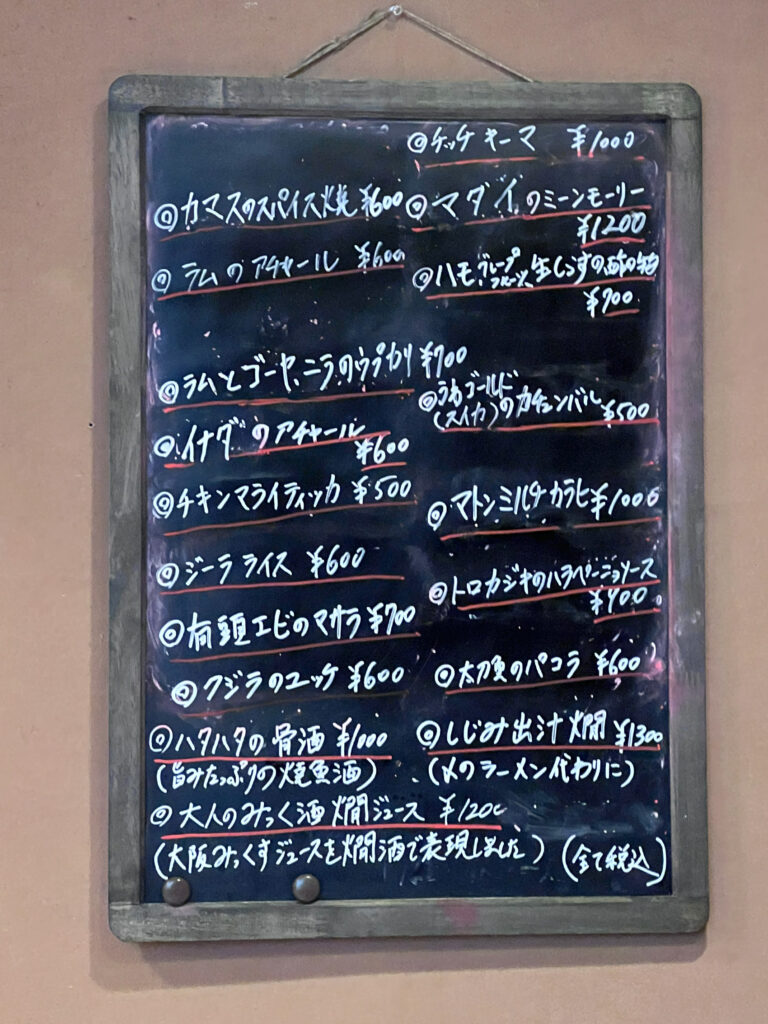 ◎ケッチキーマ ¥1000
◎カマスのスパイス焼 ¥600
◎マダイのミーンモーリー
¥1200
◎ラムのアチャール ¥600
◎ハモ、グレープ
フルーツ、生しらすの酢の物
¥700
◎ラムとゴーヤ、ニラのウプカリ ¥700
◎うねゴールド
(スイカ)のカチュンバル ¥500
◎イナダのアチャール
¥600
◎チキンマライティッカ ¥500
◎マトンミルチカラヒ ¥1000
◎ジーラライス ¥600
◎トロカジキのハラペーニョソース
¥900
◎有頭エビのマサラ ¥700
◎クジラのユッケ ¥600
◎太刀魚のパコラ ¥600
◎ハタハタの骨酒 ¥1000
(旨みたっぷりの焼魚酒)
◎しじみ出汁燗 ¥1300
(〆のラーメン代わりに)
◎大人のみっく酒燗ジュース ¥1200
(大阪みっくすジュースを燗酒で表現しました)
(全て税込)